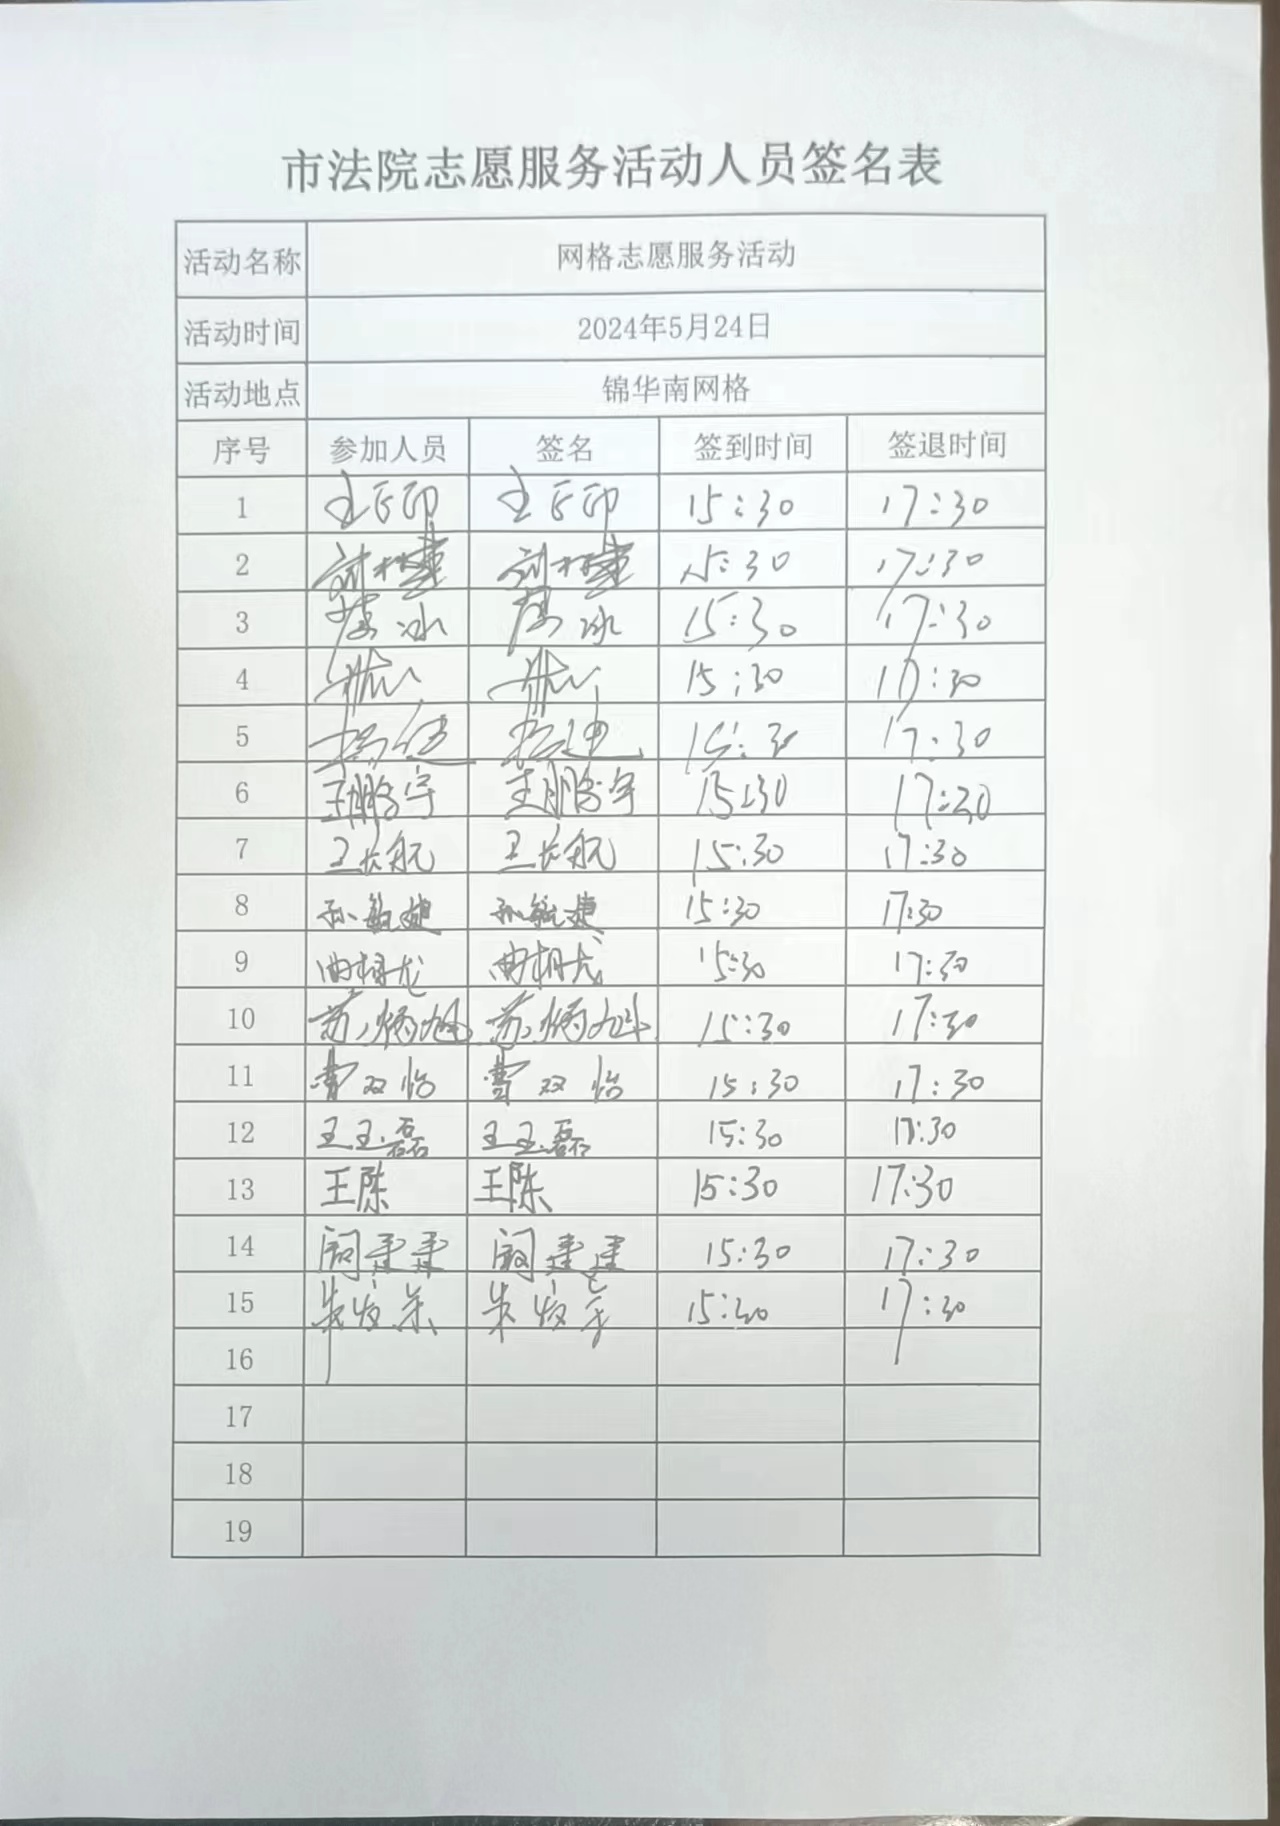 市法院志愿服务活动人员签名表
活动名称 网格志愿服务活动
活动时间 2024年5月24日
活动地点 锦华南网格
序号 参加人员 签名 签到时间 签退时间
1 15:30 17:30
2 15:30 17:30
3 冰 冰 15:30 17:30
4 15:30 17:30
5 杨 杨 15:30 17:30
6 王鹏宇 王鹏宇 15:30 17:30
7 王长航 王长航 15:30 17:30
8 孙敏捷 孙敏捷 15:30 17:30
9 曲相龙 曲相龙 15:30 17:30
10 苏炳旭 苏炳旭 15:30 17:30
11 曹双怡 曹双怡 15:30 17:30
12 王玉磊 王玉磊 15:30 17:30
13 王陈 王陈 15:30 17:30
14 15:30 17:30
15 朱 朱 15:30 17:30
16
17
18
19